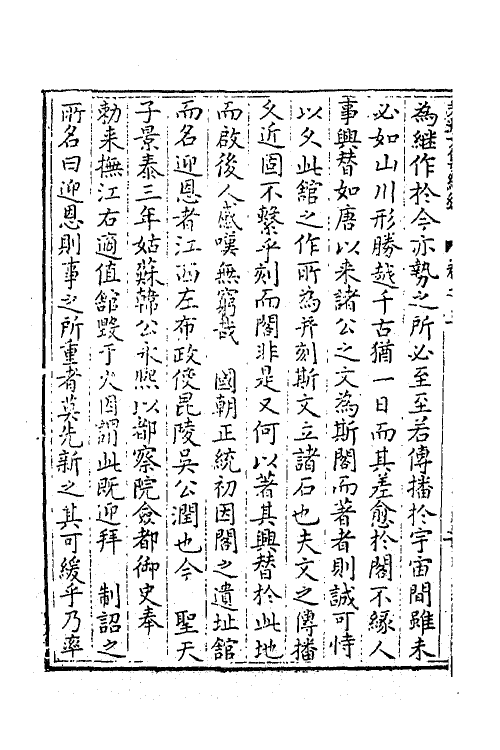 為継作於今亦勢之所必至至若傳播於宇宙間雖未
必如山川形勝越千古猶一日而其差愈於閣不緣人
事興替如唐以来諸公之文為斯閣而著者則誠可恃
以久此舘之作所為并刻斯文立諸石也夫文之傳播
久近固不繫乎刻而閣非是又何以著其興替於此地
而啟後人感嘆無窮哉 國朝正統初因閣之遺址舘
而名迎恩者江西左布政使毘陵吳公潤也今 聖天
子景泰三年姑蘇韓公永熙以都察院僉都御史奉
勑来撫江右適值舘毀于火因謂此既迎拜 制詔之
所名曰迎恩則事之所重者莫先新之其可緩乎乃率